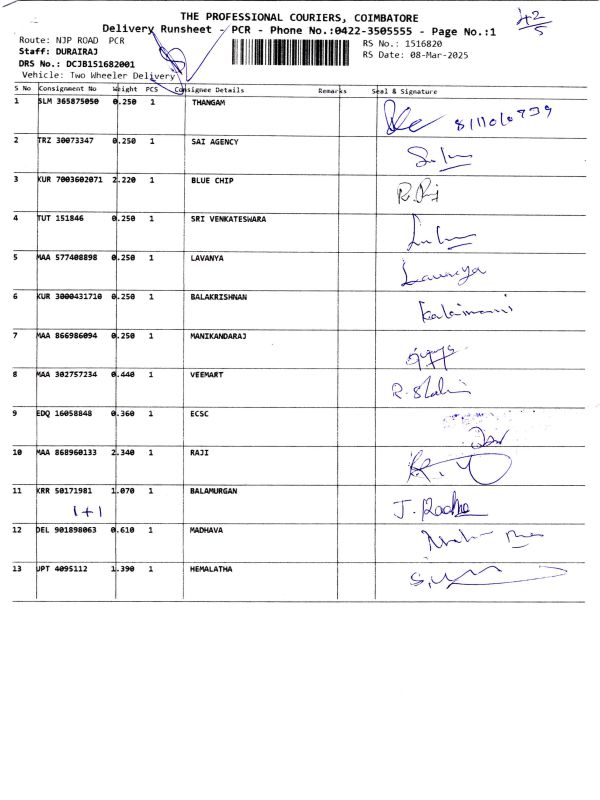 THE PROFESSIONAL COURIERS, COIMBATORE
42/5
Delivery Runsheet - PCR - Phone No.:0422-3505555 - Page No.:1
Route: NJP ROAD PCR
RS No.: 1516820
Staff: DURAIRAJ
RS Date: 08-Mar-2025
DRS No.: DCJB151682001
Vehicle: Two Wheeler Delivery
S No Consignment No Weight PCS Consignee Details Remarks Seal & Signature
1 SLM 365875050 0.250 1 THANGAM
2 TRZ 30073347 0.250 1 SAI AGENCY
3 KUR 7003602071 2.220 1 BLUE CHIP
4 TUT 151846 0.250 1 SRI VENKATESWARA
5 MAA 577408898 0.250 1 LAVANYA Lavanya
6 KUR 3000431710 0.250 1 BALAKRISHNAN Kalaimani
7 MAA 866986094 0.250 1 MANIKANDARAJ
8 MAA 302757234 0.440 1 VEEMART
9 EDQ 16058848 0.360 1 ECSC
10 MAA 868960133 2.340 1 RAJI
11 KRR 50171981 1.070 1 BALAMURGAN J. Radha
1+1
12 DEL 901898063 0.610 1 MADHAVA
13 UPT 4095112 1.390 1 HEMALATHA